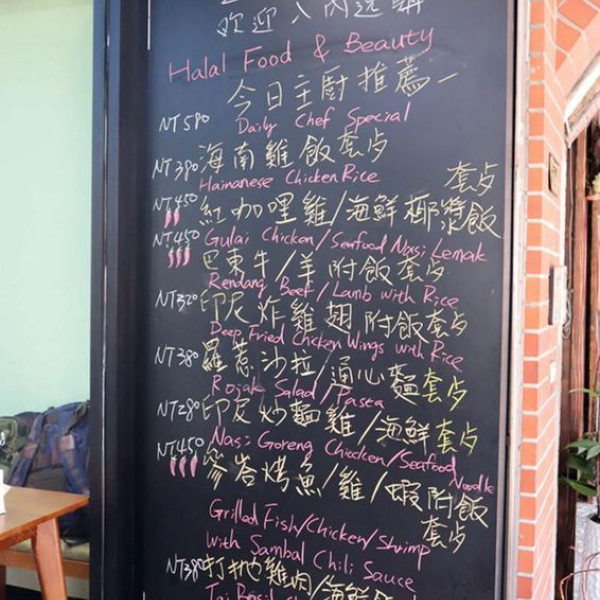 歡迎入內選購
Halal Food & Beauty
今日主廚推薦
NT 590 Daily Chef Special
NT 390 海南雞飯套歺
Hainanese Chicken Rice
套歺
NT 450 紅咖哩雞/海鮮椰漿飯
Gulai Chicken/Seafood Nasi Lemak
NT 450 巴東牛/羊附飯套歺
Rendang Beef/Lamb with Rice
NT 320 印尼炸雞翅附飯套歺
Deep Fried Chicken Wings with Rice
NT 380 羅惹沙拉/通心麵套歺
Rojak Salad/Pasta
NT 280 印尼炒麵雞/海鮮套歺
Nasi Goreng Chicken/Seafood
Noodle
NT 450 參峇烤魚/雞/蝦附飯
套歺
Grilled Fish/Chicken/Shrimp
with Sambal Chili Sauce
NT 380 打拋雞肉/海鮮